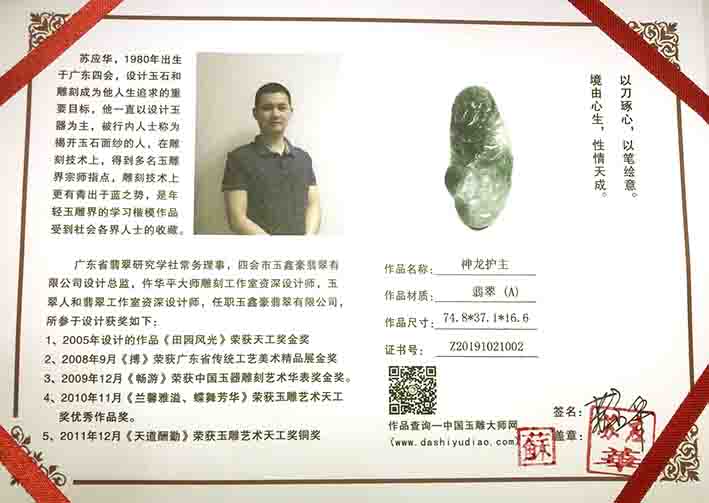 苏应华，1980年出生
于广东四会，设计玉石和
雕刻成为他人生追求的重
要目标，他一直以设计玉
器为主，被行内人士称为
揭开玉石面纱的人，在雕
刻技术上，得到多名玉雕
界宗师指点，雕刻技术上
更有青出于蓝之势，是年
轻玉雕界的学习楷模作品
受到社会各界人士的收藏。
广东省翡翠研究学社常务理事，四会市玉鑫豪翡翠有
限公司设计总监，仵华平大师雕刻工作室资深设计师，玉
翠人和翡翠工作室资深设计师，任职玉鑫豪翡翠有限公司，
所参于设计获奖如下：
1、2005年设计的作品《田园风光》荣获天工奖金奖
2、2008年9月《搏》荣获广东省传统工艺美术精品展金奖
3、2009年12月《畅游》荣获中国玉器雕刻艺术华表奖金奖。
4、2010年11月《兰馨雅溢、蝶舞芳华》荣获玉雕艺术天工
奖优秀作品奖。
5、2011年12月《天道酬勤》荣获玉雕艺术天工奖铜奖
以刀琢心，以笔绘意。
境由心生，性情天成。
作品名称：神龙护主
作品材质：翡翠（A）
作品尺寸：74.8*37.1*16.6
证书号：Z20191021002
作品查询—中国玉雕大师网
（www.dashiyudiao.com）
签名：
盖章：
蘇